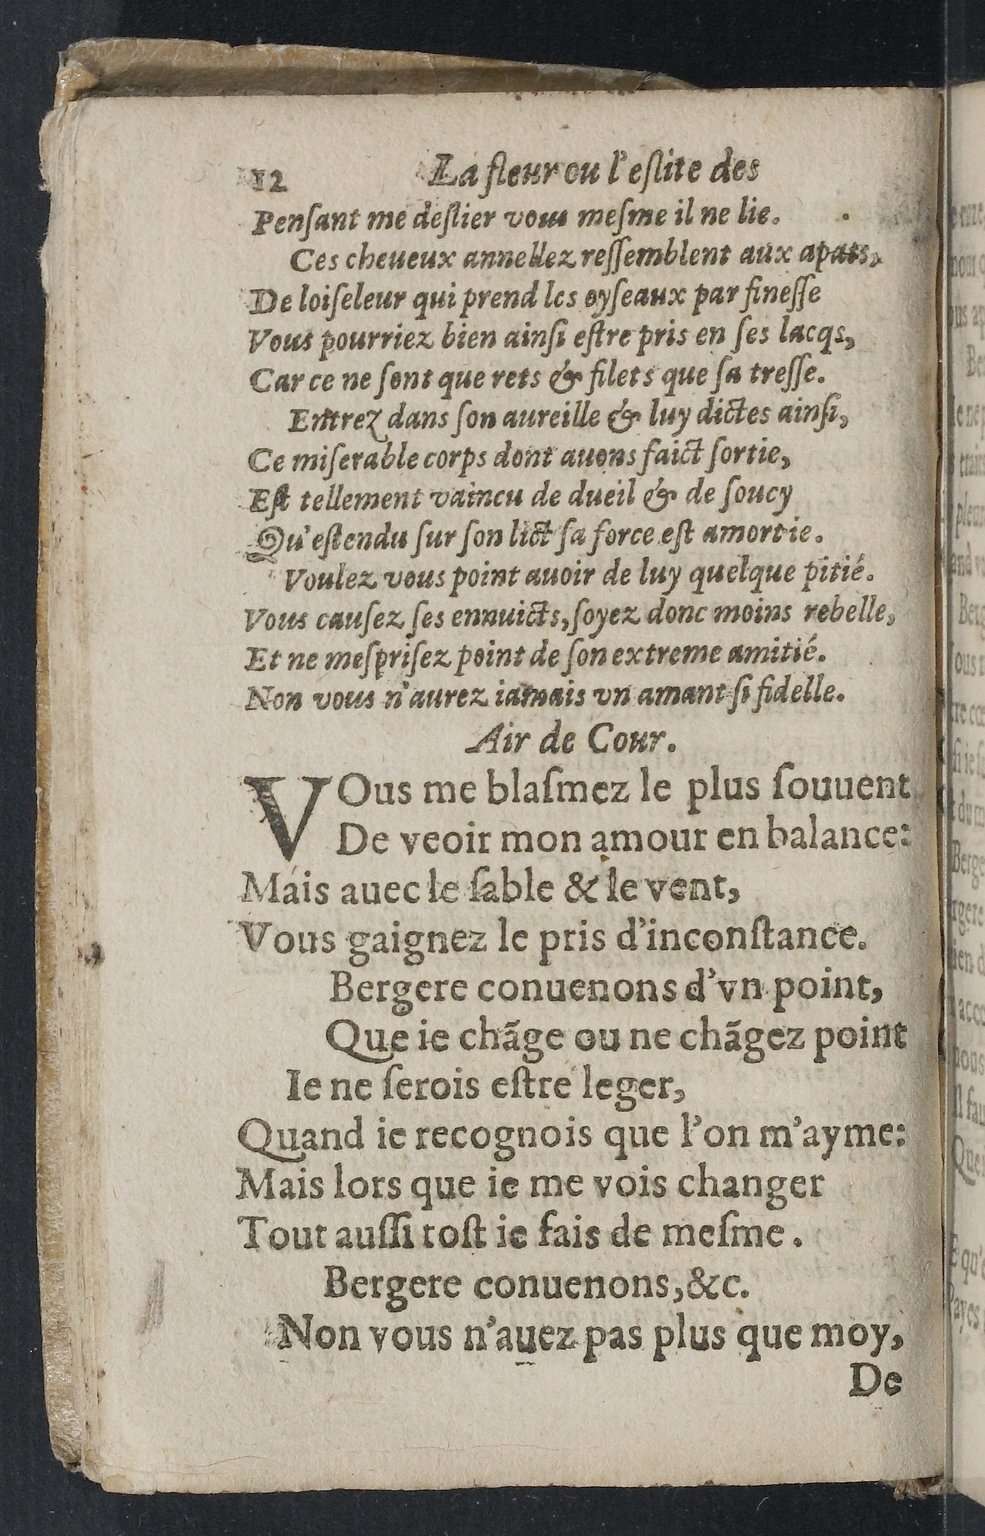 12 La fleur ou l'eslite des
Penſant me deſlier vous meſme il ne lie.
Ces cheueux annellez reſſemblent aux apats,
De loiſeleur qui prend les oyſeaux par fineſſe
Vous pourriez bien ainſi eſtre pris en ſes lacqs,
Car ce ne ſont que rets & filets que ſa treſſe.
Entrez dans ſon aureille & luy dictes ainſi,
Ce miſerable corps dont auons faict ſortie,
Eſt tellement vaincu de dueil & de ſoucy
Qu'eſtendu ſur ſon lict ſa force eſt amortie.
Voulez vous point auoir de luy quelque pitié.
Vous cauſez ſes ennuicts, ſoyez donc moins rebelle,
Et ne meſpriſez point de ſon extreme amitié.
Non vous n'aurez iamais vn amant ſi fidelle.
Air de Cour.
VOus me blaſmez le plus ſouuent
De veoir mon amour en balance:
Mais auec le ſable & le vent,
Vous gaignez le pris d'inconſtance.
Bergere conuenons d'vn point,
Que ie chãge ou ne chãgez point
Ie ne ſerois eſtre leger,
Quand ie recognois que l'on m'ayme:
Mais lors que ie me vois changer
Tout auſſi toſt ie fais de meſme.
Bergere conuenons, &c.
Non vous n'auez pas plus que moy,
De